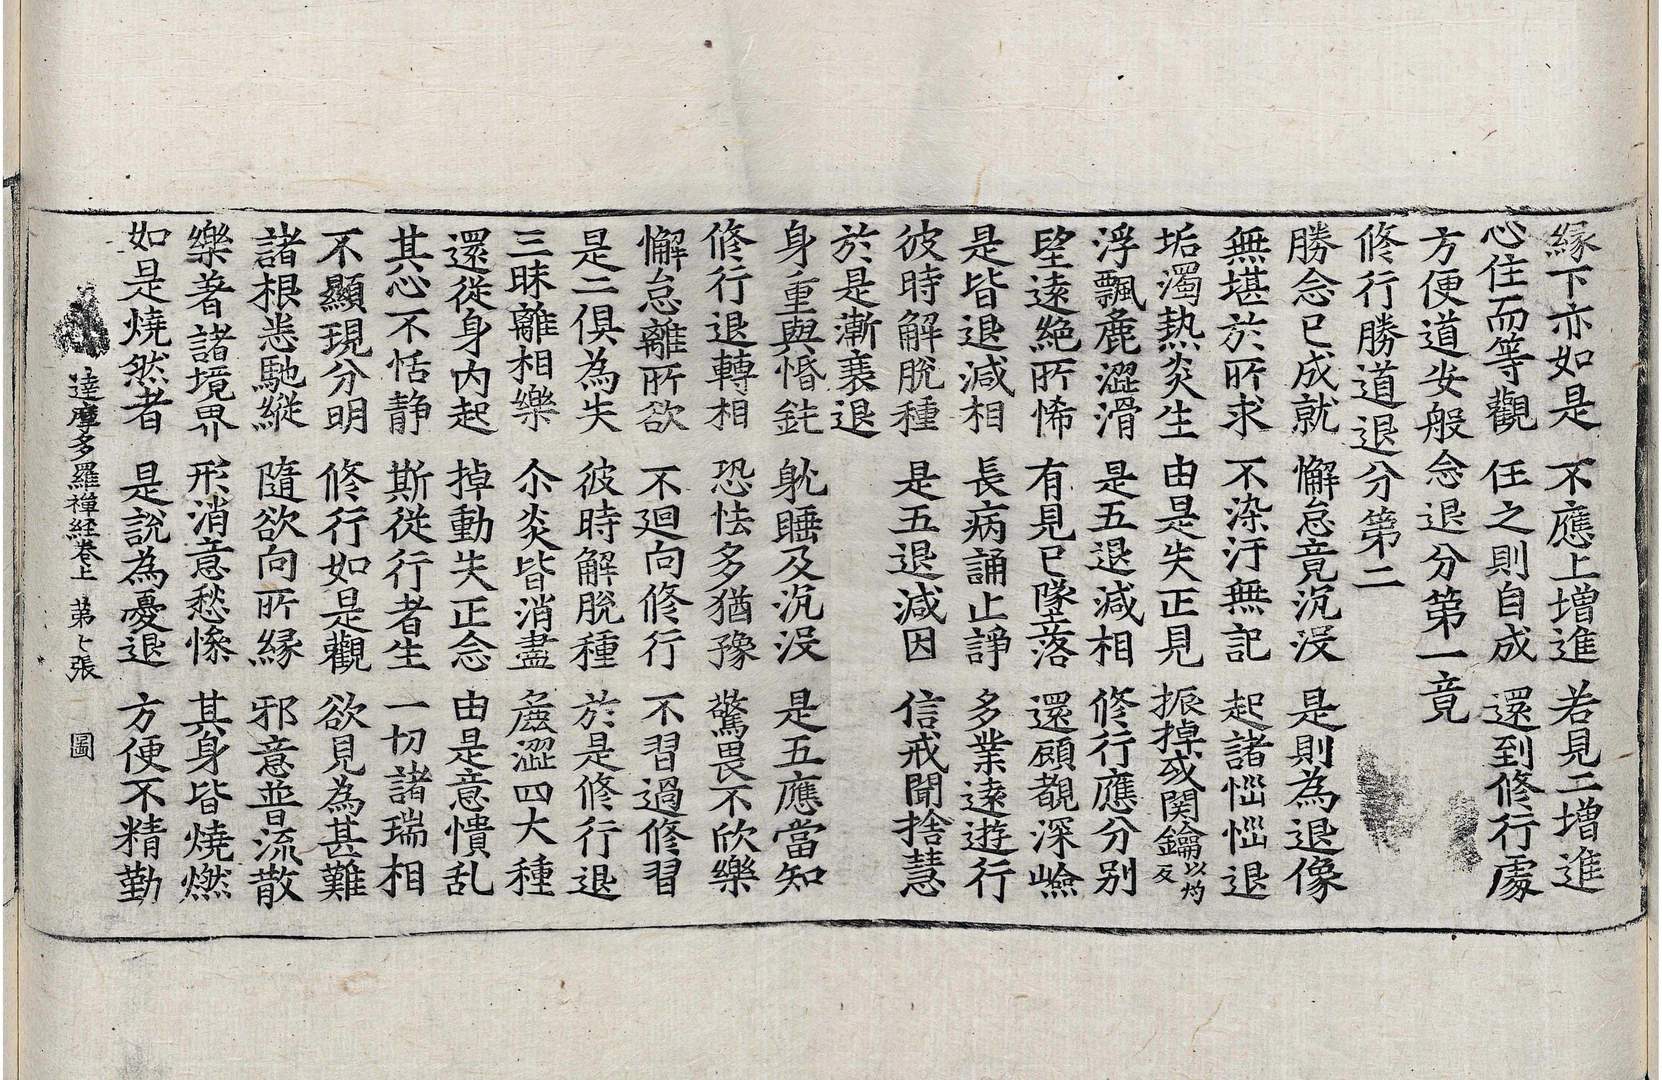 緣下亦如是 不應上增進 若見二增進
心住而等觀 任之則自成 還到修行處
方便道安般念退分第一竟
修行勝道退分第二
勝念已成就 懈怠竟沉没 是則為退像
無堪於所求 不染汙無記 起諸惱惱退
垢濁熱炎生 由是失正見 振掉或関鑰以灼反
浮飄麁澀滑 是五退減相 修行應分别
望遠絶所悕 有見已墜落 還顧覩深嶮
是皆退減相 長病誦止諍 多業遠遊行
彼時解脫種 是五退減因 信戒聞捨慧
於是漸衰退
身重與惛鈍 躭睡及沉没 是五應當知
修行退轉相 恐怯多猶豫 驚畏不欣樂
懈怠離所欲 不迴向修行 不習過修習
是二俱為失 彼時解脫種 於是修行退
三昧離相樂 尒炎皆消盡 麁澀四大種
還從身内起 掉動失正念 由是意憒乱
其心不恬静 斯從行者生 一切諸瑞相
不顯現分明 修行如是觀 欲見為甚難
諸根恚馳縱 隨欲向所緣 邪意普流散
樂著諸境界 形消意愁慘 其身皆燒燃
如是燒然者 是說為憂退 方便不精勤
達摩多羅禪経卷上 第七張 圖